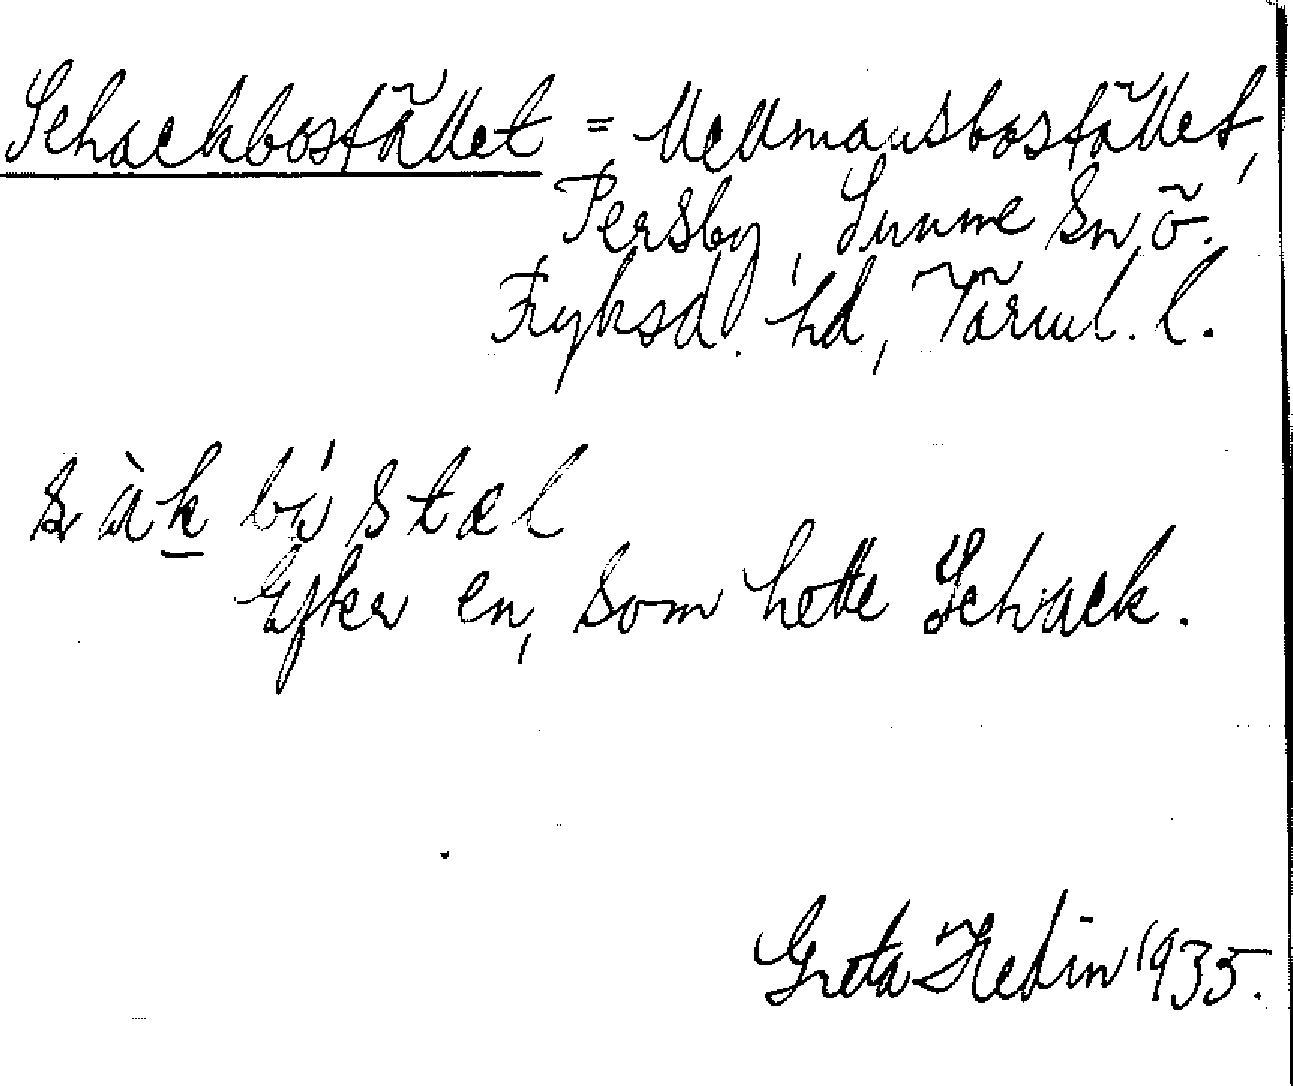 Schackbostället = Mellmansbostället,
Persby, Sunne sn, ö.
Fryksd. hd, Värml. l.
s àk bó stæl
Efter en, som hette Schack.
Greta Hedin 1935.